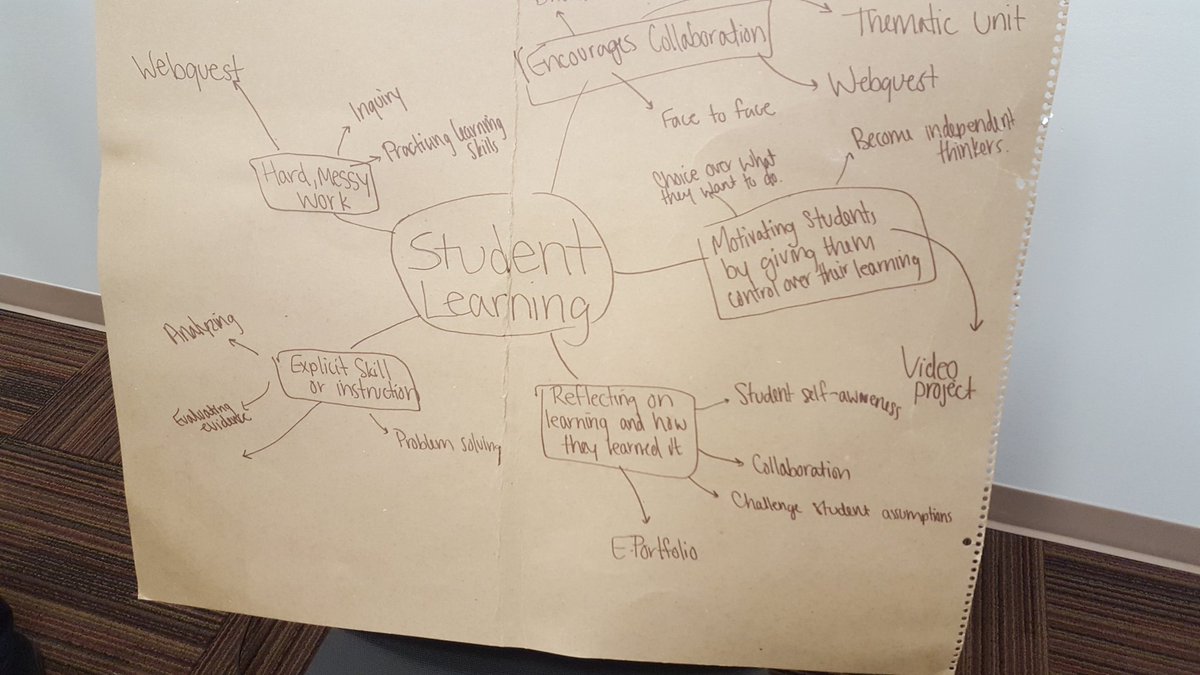 Encourages Collaboration
Thematic Unit
Webquest
Face to face
Webquest
Inquiry
Practicing learning
skills
Hard, Messy
Work
Student
Learning
Choice over what
they want to do.
Become independent
thinkers.
Motivating Students
by giving them
control over their learning
Video
project
Analyzing
Explicit Skill
or instruction
Evaluating
evidence
Problem solving
Reflecting on
learning and how
they learned it
Student self-awareness
Collaboration
Challenge student assumptions
E-Portfolio